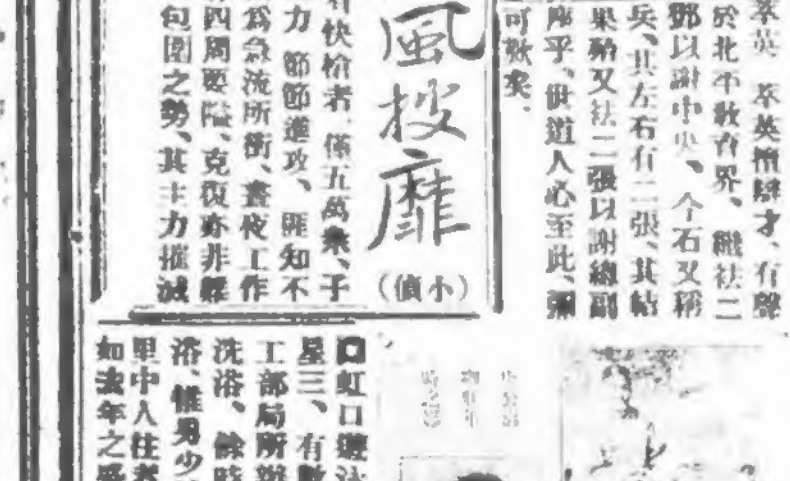 萃英、萃英擅辭才、有聲
於北平敎育界、繼祛二
鄧以謝中央、今石又稱
兵、其左右有二張、其帖
果殆又祛二張以謝總副
座乎、世道人心至此、彌
可歎矣、
風披靡
(小偵)
快槍者、僅五萬衆、于
力 節節進攻、匪知不
爲急流所衝、晝夜工作
四周要隘、克復亦非難
包圍之勢、其主力摧滅
口虹口
星三、有數
工部局所辦
洗浴、餘時
浴、惟男少
里中人往者
如去年之盛